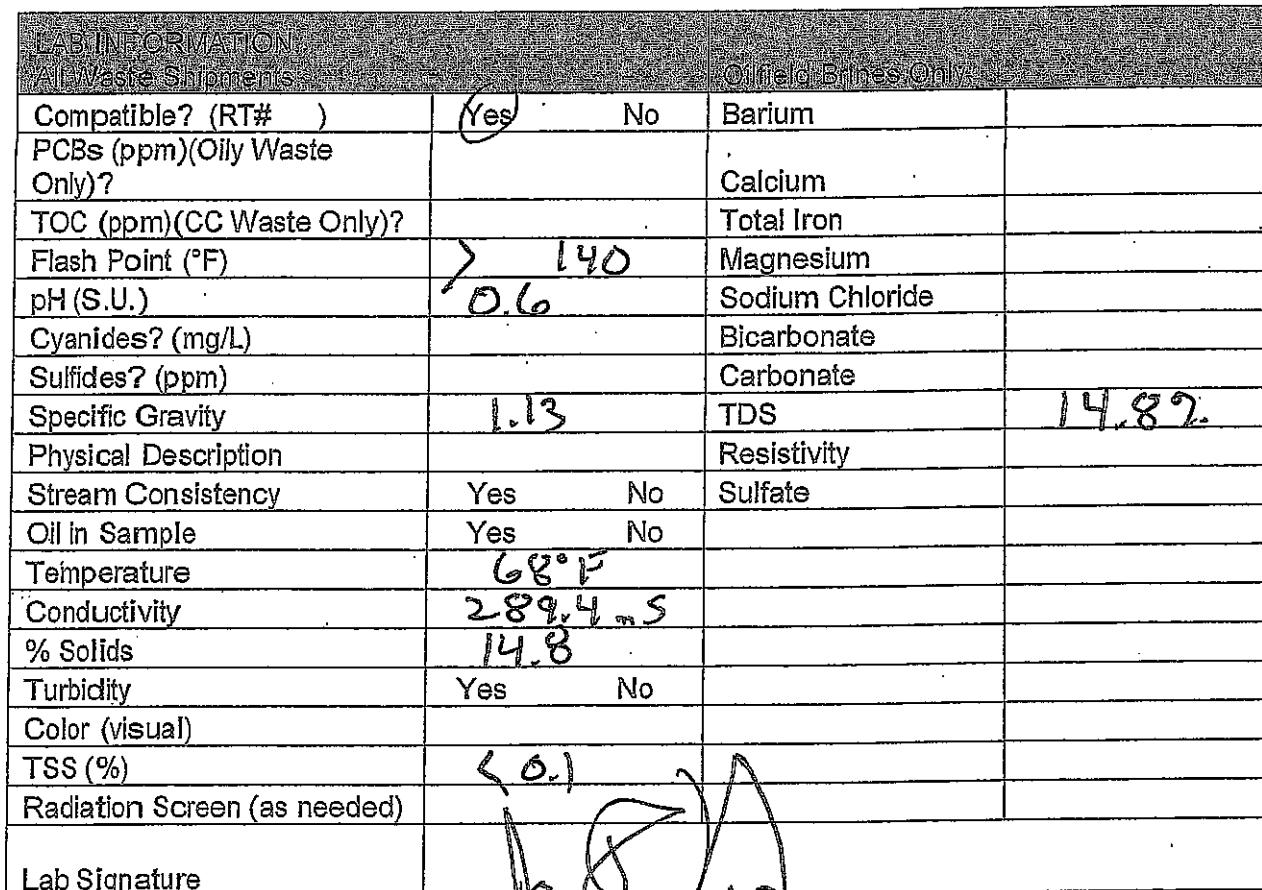 LAB INFORMATION
All Waste Shipments Oilfield Brines Only
Compatible? (RT# ) Yes No Barium
PCBs (ppm)(Oily Waste
Only)? Calcium
TOC (ppm)(CC Waste Only)? Total Iron
Flash Point (°F) > 140 Magnesium
pH (S.U.) 0.6 Sodium Chloride
Cyanides? (mg/L) Bicarbonate
Sulfides? (ppm) Carbonate
Specific Gravity 1.13 TDS 14.8%
Physical Description Resistivity
Stream Consistency Yes No Sulfate
Oil in Sample Yes No
Temperature 68°F
Conductivity 289.4 mS
% Solids 14.8
Turbidity Yes No
Color (visual)
TSS (%) < 0.1
Radiation Screen (as needed)
Lab Signature